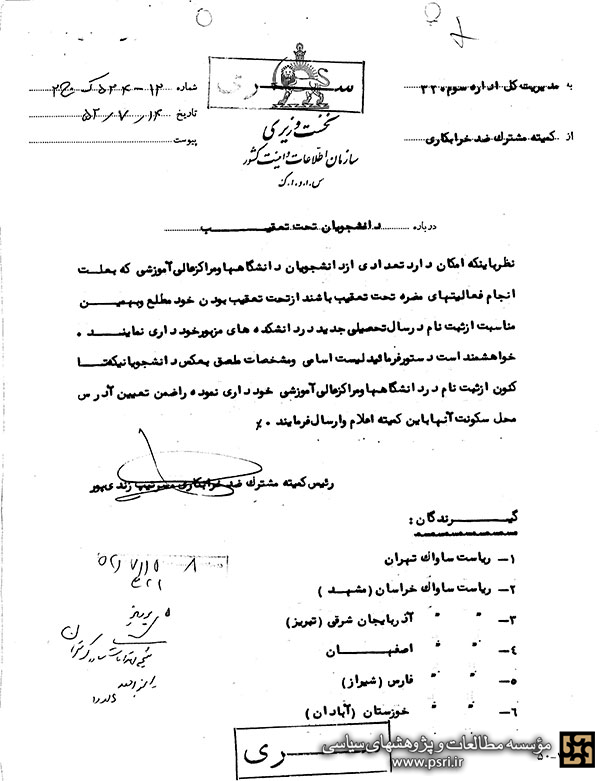 سری
به مدیریت کل اداره سوم ۳۳۰
شماره
از کمیته مشترک ضد خرابکاری
تاریخ ۱۴ر۷ر۵۲
پیوست
نخست وزیری
سازمان اطلاعات و امنیت کشور
س.ا.و.ا.ک
درباره دانشجویان تحت تعقیب
نظرباینکه امکان دارد تعدادی ازدانشجویان دانشگاهها و مراکزعالی آموزشی که بعلت
انجام فعالیتهای مضره تحت تعقیب باشند ازتحت تعقیب بودن خود مطلع وبهمین
مناسبت ازثبت نام درسال تحصیلی جدید دردانشکده های مزبورخودداری نمایند .
خواهشمند است دستورفرمائید لیست اسامی ومشخصات ملصق بعکس دانشجویانیکه تا
کنون ازثبت نام دردانشگاهها و مراکزعالی آموزشی خودداری نموده راضمن تعیین آدرس
محل سکونت آنها باین کمیته اعلام وارسال فرمایند .٪
رئیس کمیته مشترک ضد خرابکاری سرتیپ زندی پور
گیرندگان :
۱- ریاست ساواک تهران
۲- ریاست ساواک خراسان (مشهد )
۳- " " آذربایجان شرقی (تبریز)
۴- " " اصفهان
۵- " " فارس (شیراز)
۶- " " خوزستان (آبادان)
سری
مؤسسه مطالعات و پژوهشهای سیاسی
www.psri.ir